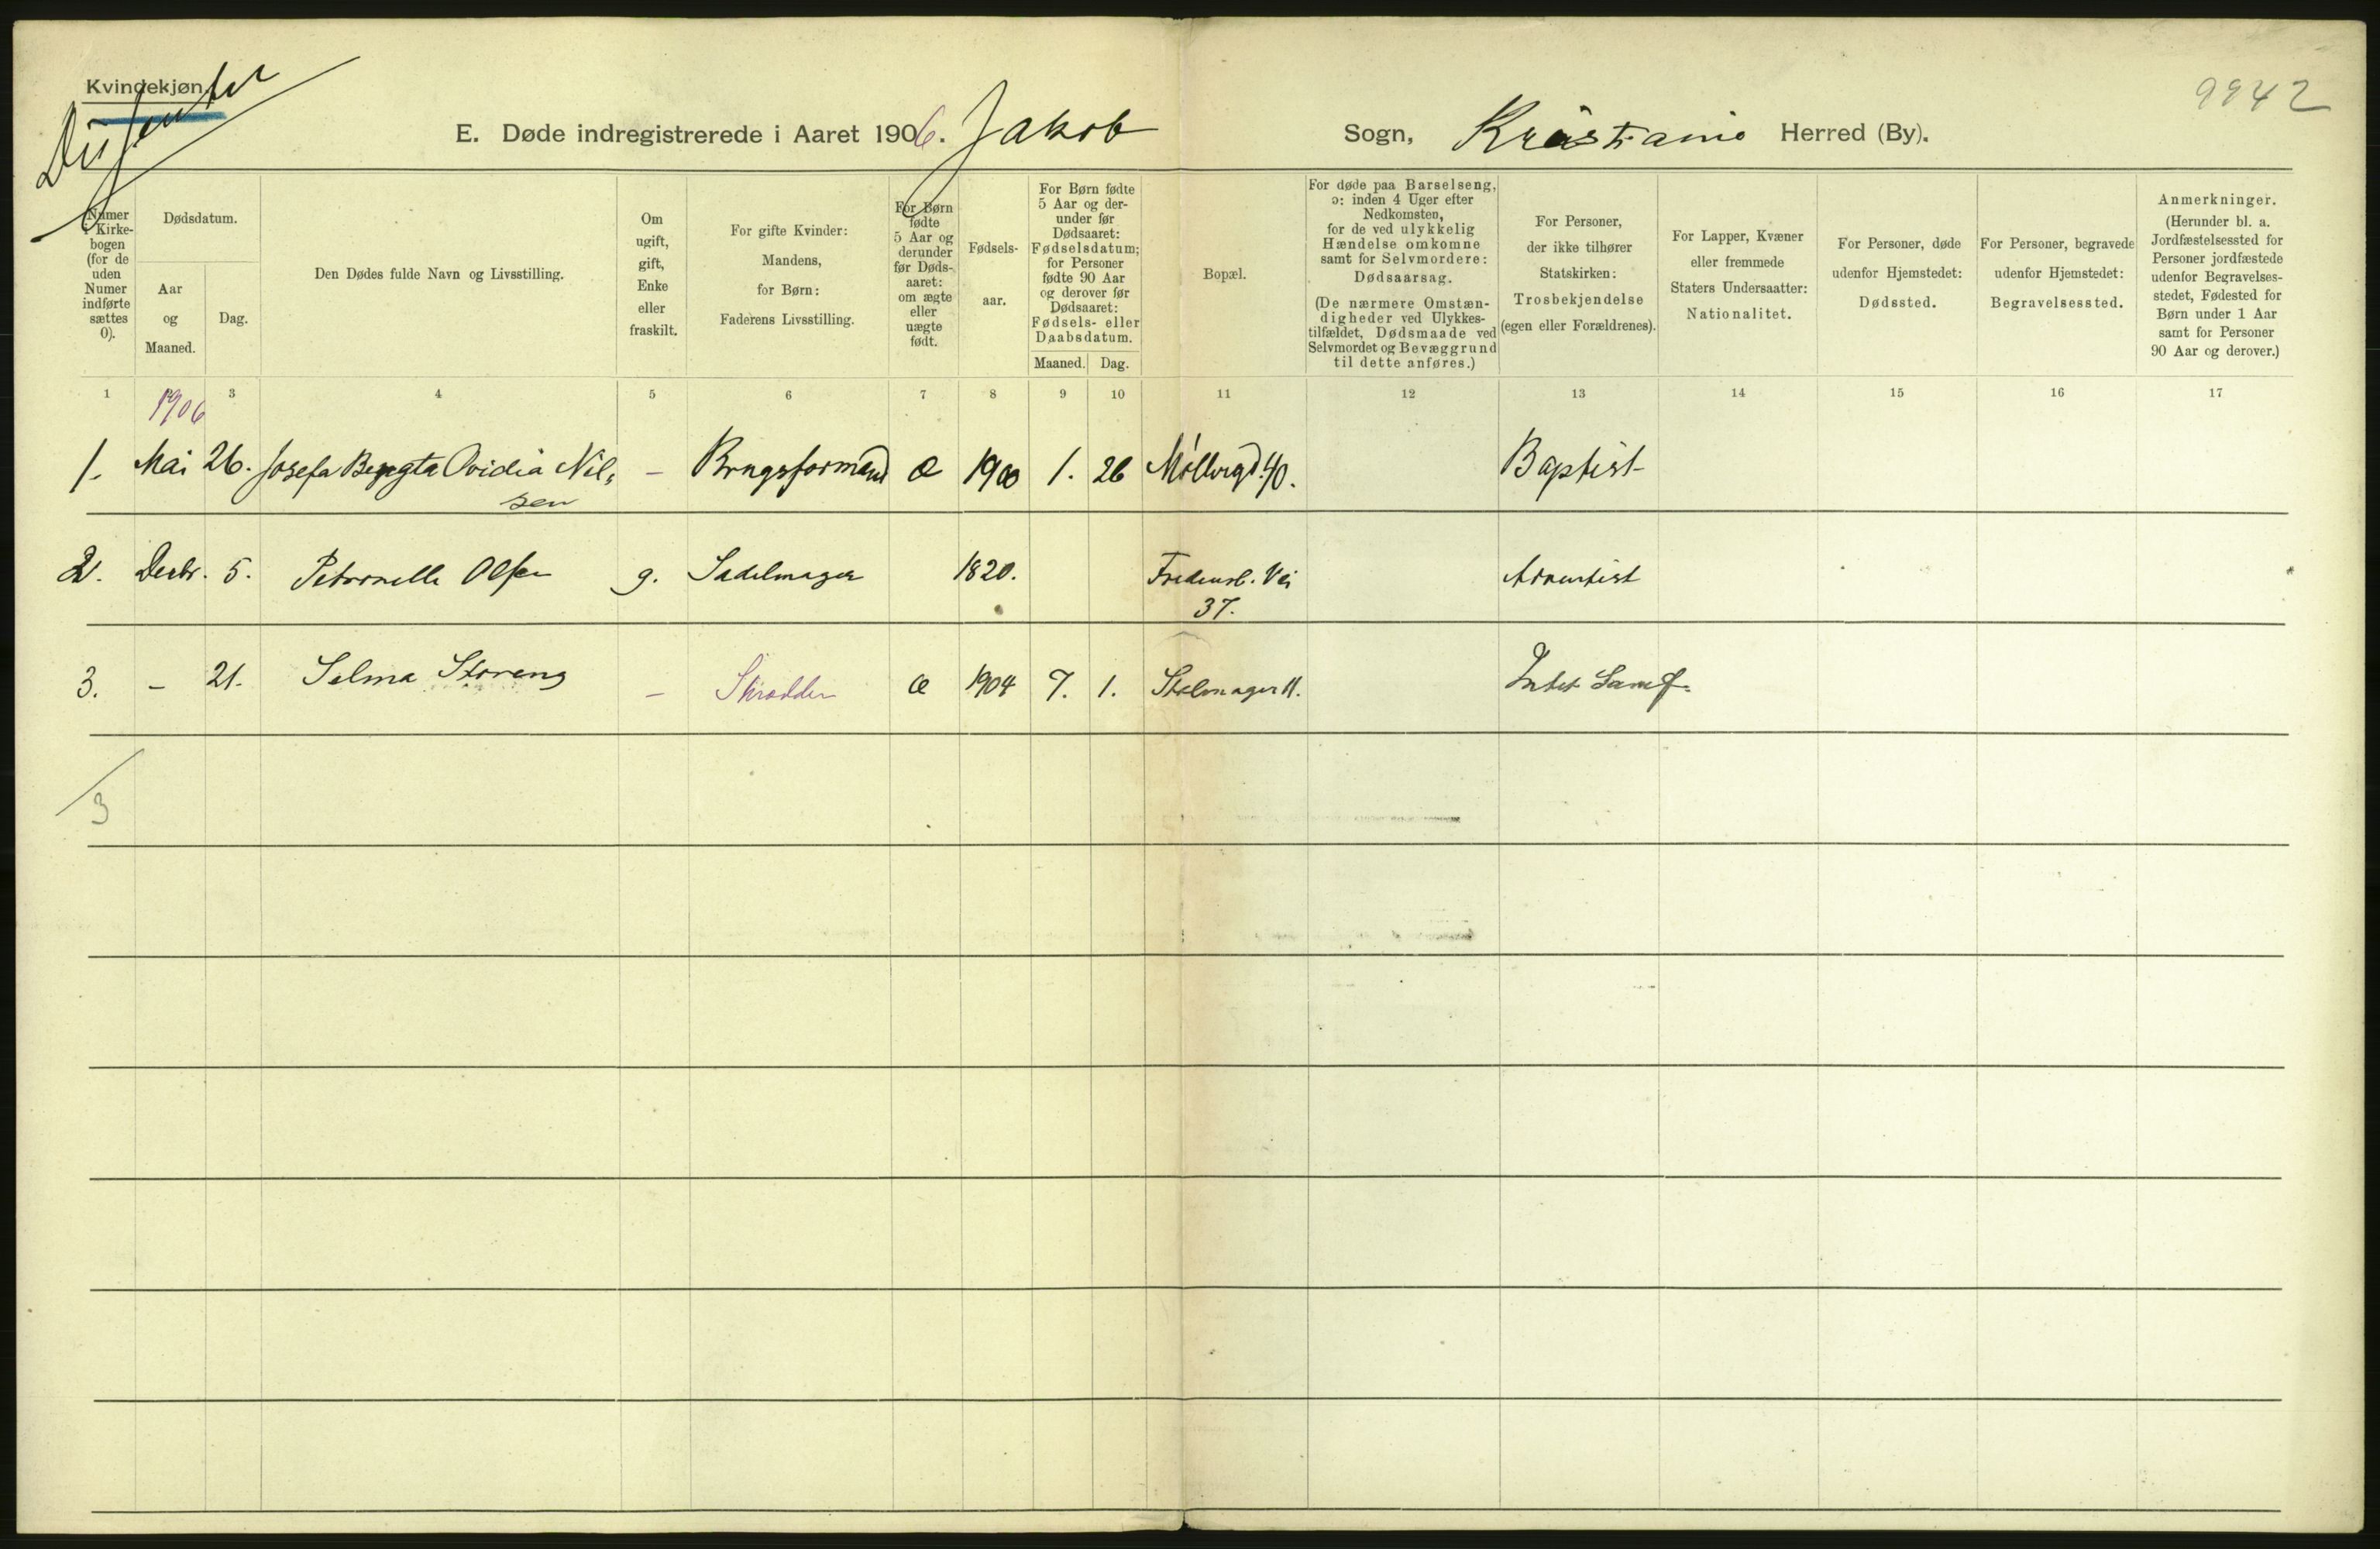 Kvindekjøn.
Dissenter
9942
E. Døde indregistrerede i Aaret 1906. Jakob Sogn, Kristiania Herred (By).
Numer i Kirkebogen (for de uden Numer indførte sættes 0).
Dødsdatum.
Aar og Maaned.
Dag.
Den Dødes fulde Navn og Livsstilling.
Om ugift, gift, Enke eller fraskilt.
For gifte Kvinder: Mandens, for Børn: Faderens Livsstilling.
For Børn fødte 5 Aar og derunder før Dødsaaret: om ægte eller uægte født.
Fødselsaar.
For Børn fødte 5 Aar og derunder før Dødsaaret: Fødselsdatum; for Personer fødte 90 Aar og derover før Dødsaaret: Fødsels- eller Daabsdatum.
Maaned. Dag.
Bopæl.
For døde paa Barselseng, ɔ: inden 4 Uger efter Nedkomsten, for de ved ulykkelig Hændelse omkomne samt for Selvmordere: Dødsaarsag.
(De nærmere Omstændigheder ved Ulykkestilfældet, Dødsmaade ved Selvmordet og Bevæggrund til dette anføres.)
For Personer, der ikke tilhører Statskirken: Trosbekjendelse (egen eller Forældrenes).
For Lapper, Kvæner eller fremmede Staters Undersaatter: Nationalitet.
For Personer, døde udenfor Hjemstedet: Dødssted.
For Personer, begravede udenfor Hjemstedet: Begravelsessted.
Anmerkninger.
(Herunder bl. a. Jordfæstelsessted for Personer jordfæstede udenfor Begravelsesstedet, Fødested for Børn under 1 Aar samt for Personer 90 Aar og derover.)
1 3 4 5 6 7 8 9 10 11 12 13 14 15 16 17
1906
1. Mai 26. Josefa Bengta Ovidia Nil-sen - Brugsformand æ 1900 1. 26 Møllergd. 40. Baptist
2. Decbr. 5. Petronelle Olsen g. Sadelmager 1820. Fredensb. Vei 37. Adventist
3. - 21. Selma Storeng - Skrædder æ 1904 7. 1. Stolmager 11. Intet Samf.
3